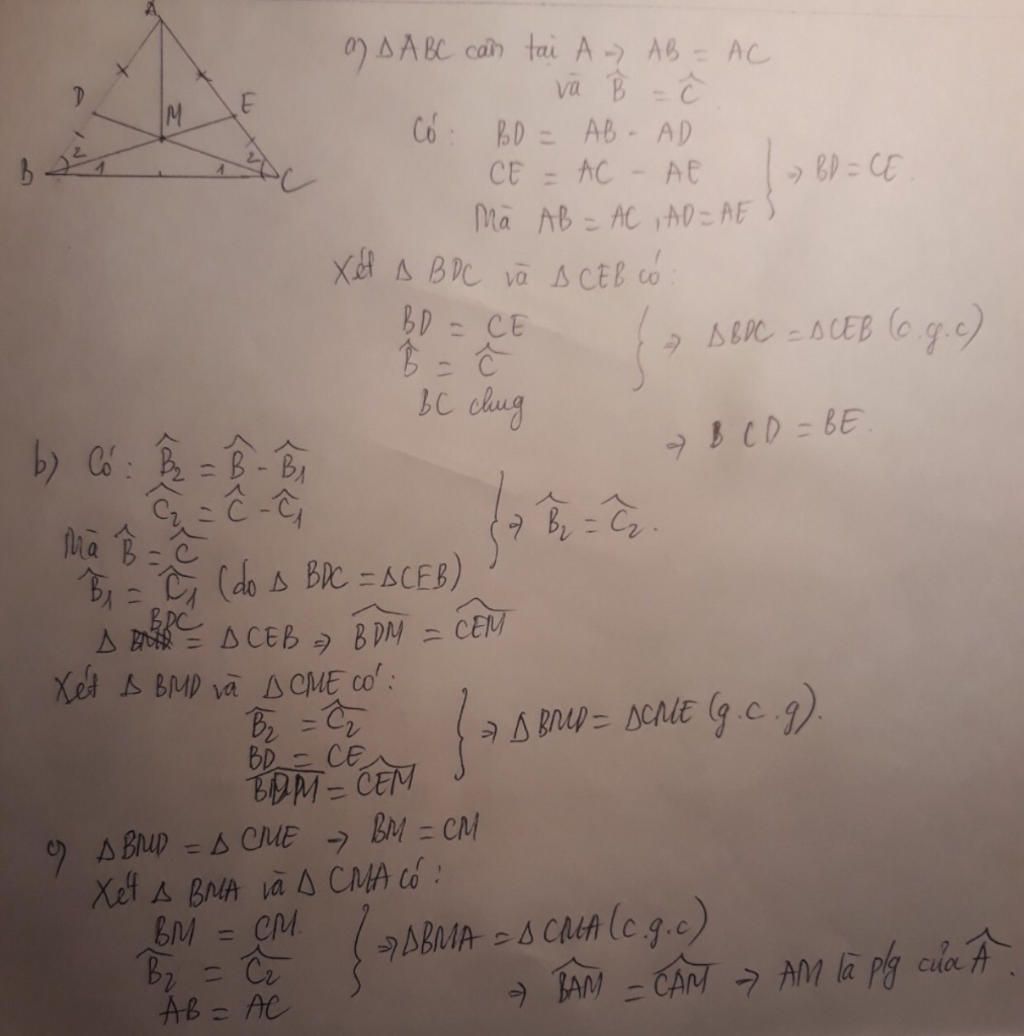 A
D
E
M
B
2
1
1
2
C
a) ΔABC cân tại A → AB = AC
và B̂ = Ĉ
Có: BD = AB - AD
CE = AC - AE
Mà AB = AC, AD = AE
⇒ BD = CE.
Xét Δ BDC và Δ CEB có:
BD = CE
B̂ = Ĉ
BC chug
⇒ ΔBDC = ΔCEB (c.g.c)
⇒ CD = BE.
b) Có: B̂₂ = B̂ - B̂₁
Ĉ₂ = Ĉ - Ĉ₁
Mà B̂ = Ĉ
B̂₁ = Ĉ₁ (do Δ BDC = ΔCEB)
⇒ B̂₂ = Ĉ₂.
Δ BDC = Δ CEB ⇒ \widehat{BDM} = \widehat{CEM}
Xét Δ BMD và Δ CME có:
B̂₂ = Ĉ₂
BD = CE
\widehat{BDM} = \widehat{CEM}
⇒ Δ BMD = ΔCME (g.c.g).
c) ΔBMD = Δ CME → BM = CM
Xét Δ BMA và Δ CMA có:
BM = CM
B̂₂ = Ĉ₂
AB = AC
⇒ ΔBMA = Δ CMA (c.g.c)
⇒ \widehat{BAM} = \widehat{CAM} → AM là p/g của Â.